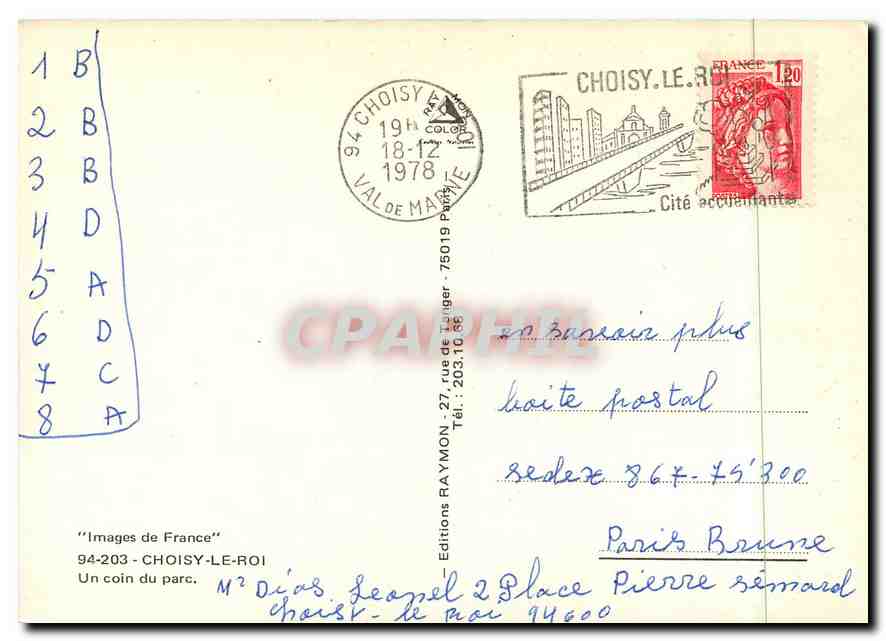 1 B
2 B
3 B
4 D
5 A
6 D
7 C
8 A
94 CHOISY LE ROI
19H
18-12
1978
VAL DE MARNE
RAYMON
COLOR
CHOISY.LE.ROI
Cité accueillante
FRANCE
1,20
CPAPHIL
Editions RAYMON - 27, rue de Tanger - 75019 Paris -
Tél. : 203.10.68
en savoir plus
boite postal
sedex 867-75'300
Paris Brune
"Images de France"
94-203 - CHOISY-LE-ROI
Un coin du parc.
Mr Dias Leonel 2 Place Pierre sémard
Choisy-le Roi 94600